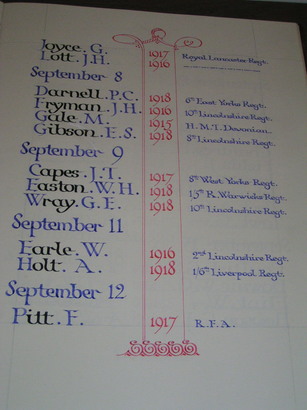 Joyce. G. 1917 Royal Lancaster Regt.
Lott. J.H. 1916
September 8
Darnell. P.C. 1918 6th East Yorks Regt.
Fryman. J.H. 1916 10th Lincolnshire Regt.
Gale. M. 1915 H.M.T. Devonian.
Gibson. E.S. 1918 8th Lincolnshire Regt.
September 9
Capes. J.T. 1917 8th West Yorks Regt.
Easton. W.H. 1918 15th R. Warwicks Regt.
Wray. G.E. 1918 10th Lincolnshire Regt.
September 11
Earle. W. 1916 2nd Lincolnshire Regt.
Holt. A. 1918 1/6th Liverpool Regt.
September 12
Pitt. F. 1917 R.F.A.